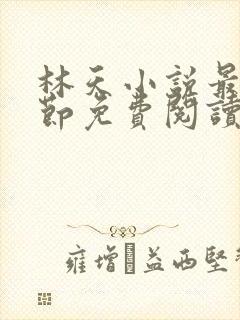 林天小说最
節免費閱讀
雍增�益西堅